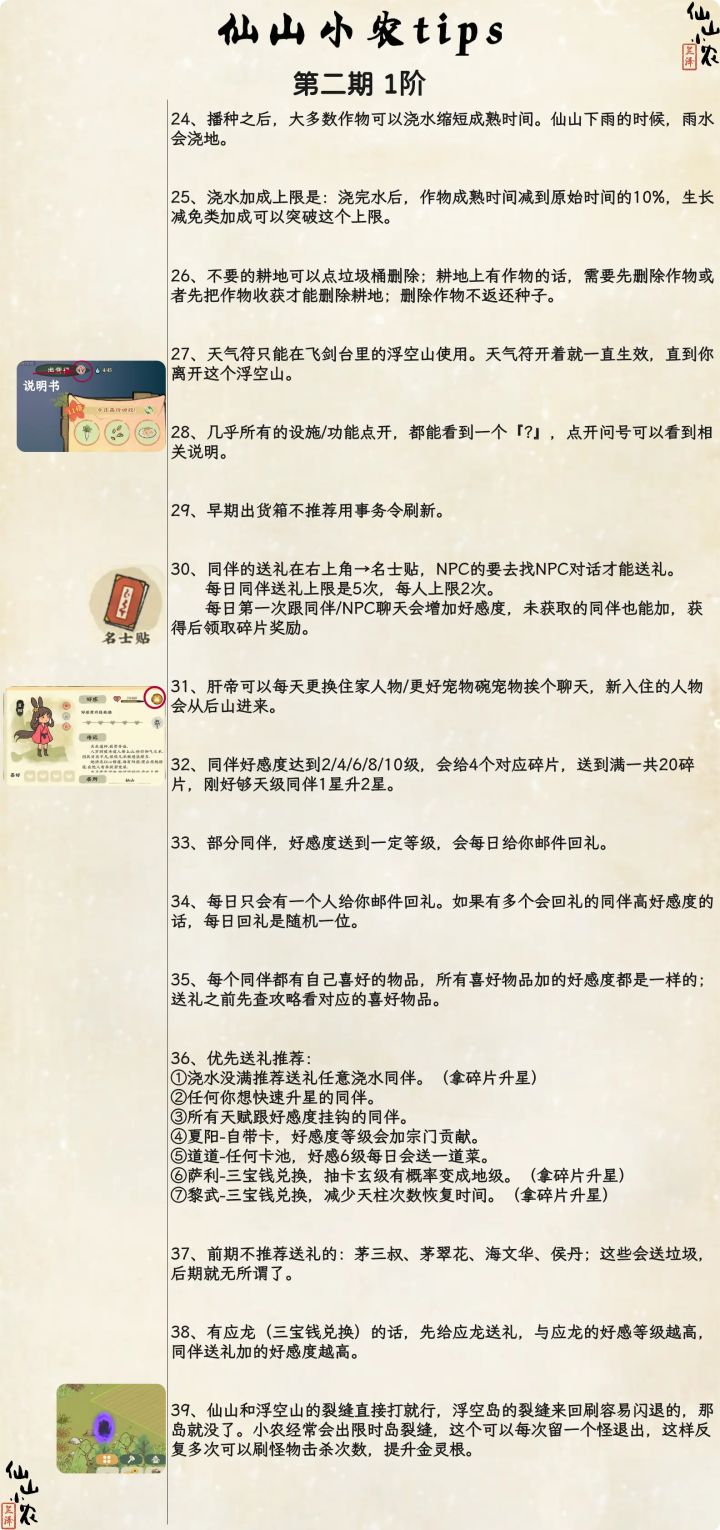 仙山小农tips
仙山小农
兰泽
第二期 1阶
24、播种之后，大多数作物可以浇水缩短成熟时间。仙山下雨的时候，雨水
会浇地。
25、浇水加成上限是：浇完水后，作物成熟时间减到原始时间的10%，生长
减免类加成可以突破这个上限。
26、不要的耕地可以点垃圾桶删除；耕地上有作物的话，需要先删除作物或
者先把作物收获才能删除耕地；删除作物不返还种子。
27、天气符只能在飞剑台里的浮空山使用。天气符开着就一直生效，直到你
离开这个浮空山。
说明书
28、几乎所有的设施/功能点开，都能看到一个『?』，点开问号可以看到相
关说明。
29、早期出货箱不推荐用事务令刷新。
30、同伴的送礼在右上角→名士贴，NPC的要去找NPC对话才能送礼。
每日同伴送礼上限是5次，每人上限2次。
每日第一次跟同伴/NPC聊天会增加好感度，未获取的同伴也能加，获
得后领取碎片奖励。
名士贴
31、肝帝可以每天更换住家人物/更好宠物碗宠物挨个聊天，新入住的人物
会从后山进来。
32、同伴好感度达到2/4/6/8/10级，会给4个对应碎片，送到满一共20碎
片，刚好够天级同伴1星升2星。
33、部分同伴，好感度送到一定等级，会每日给你邮件回礼。
34、每日只会有一个人给你邮件回礼。如果有多个会回礼的同伴高好感度的
话，每日回礼是随机一位。
35、每个同伴都有自己喜好的物品，所有喜好物品加的好感度都是一样的；
送礼之前先查攻略看对应的喜好物品。
36、优先送礼推荐：
①浇水没满推荐送礼任意浇水同伴。（拿碎片升星）
②任何你想快速升星的同伴。
③所有天赋跟好感度挂钩的同伴。
④夏阳-自带卡，好感度等级会加宗门贡献。
⑤道道-任何卡池，好感6级每日会送一道菜。
⑥萨利-三宝钱兑换，抽卡玄级有概率变成地级。（拿碎片升星）
⑦黎武-三宝钱兑换，减少天柱次数恢复时间。（拿碎片升星）
37、前期不推荐送礼的：茅三叔、茅翠花、海文华、侯丹；这些会送垃圾，
后期就无所谓了。
38、有应龙（三宝钱兑换）的话，先给应龙送礼，与应龙的好感等级越高，
同伴送礼加的好感度越高。
39、仙山和浮空山的裂缝直接打就行，浮空岛的裂缝来回刷容易闪退的，那
岛就没了。小农经常会出限时岛裂缝，这个可以每次留一个怪退出，这样反
复多次可以刷怪物击杀次数，提升金灵根。
仙山小农
兰泽